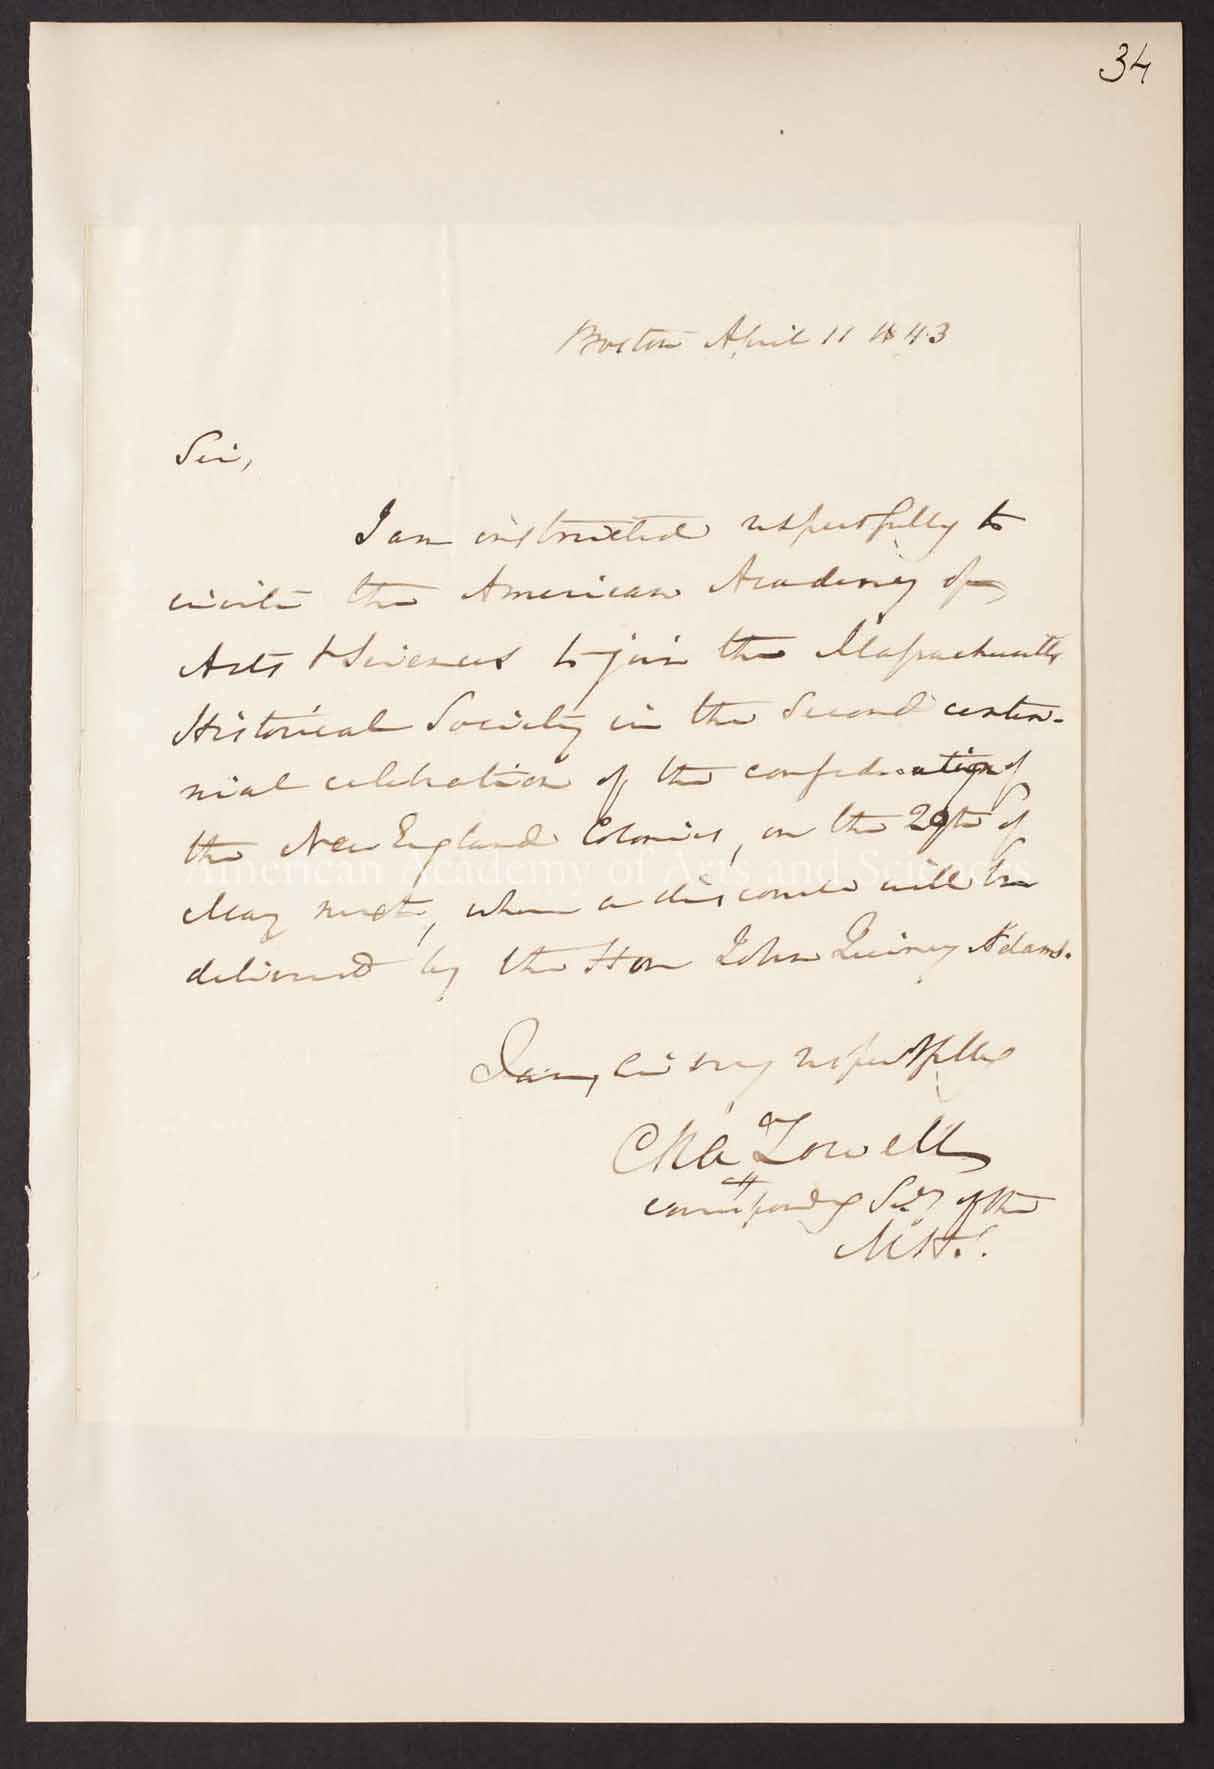 34
Boston April 11 1843
Sir,
I am instructed respectfully to
invite the American Academy of
Arts & Sciences to join the Massachusetts
Historical Society in the second centen-
nial celebration of the confederation of
the New England Colonies, on the 29th of
American Academy of Arts and Sciences
May next, when a discourse will be
delivered by the Hon John Quincy Adams.
I am, Sir very respectfully
Cha Lowell
correspondg Secy of the
M H S.